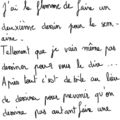 j'ai la flemme de faire un
deuxième dessin pour la sem-
aine.
Tellement que je vais même pas
dessiner pour vous le dire ...
Après tout c'est débile au lieu
de dessiner pour prévenir qu'on
dessinera pas autant faire une